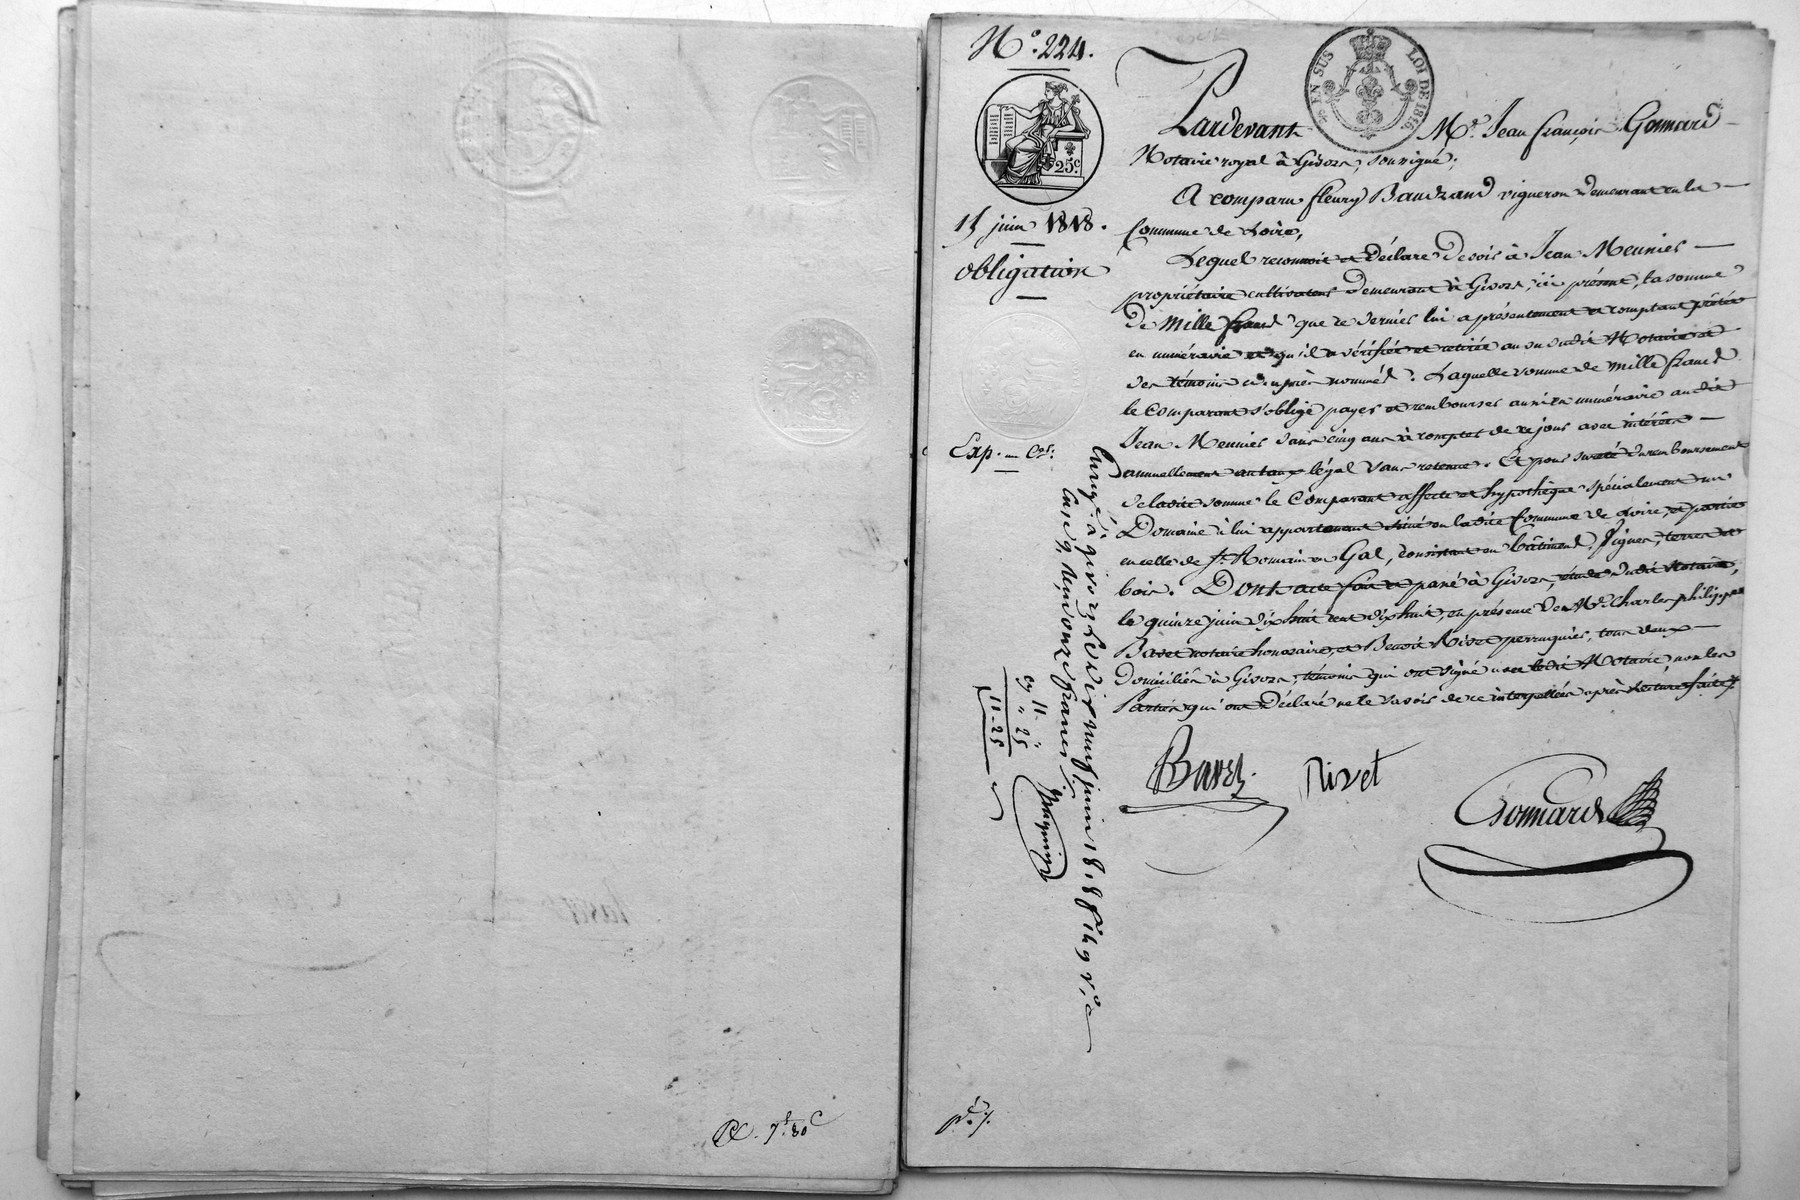 Rl. 7f. 80c
N.° 224.
EN SUS LOI DE 1816.
25c.
15 juin 1818.
obligation
Exp. un Cas.
Pardevant Me. Jean françois Gonnard
Notaire royal à Givors, soussigné;
A comparu fleury Baudrand vigneron demeurant en la
Commune de Loire,
Lequel reconnoit et déclare devoir à Jean Meunier
propriétaire cultivateur demeurant à Givors, ici présent, la somme
de mille francs que ce dernier lui a présentement et comptant prêtée
en numéraire et qu'il a vérifiée et retirée au vu dudit Notaire et
des témoins ci-après nommés. Laquelle somme de mille francs
le Comparant s'oblige payer et rembourser aussi en numéraire audit
Jean Meunier dans cinq ans à compter de ce jour avec intérêts
annuellement au taux légal sans retenue. Et pour sureté du remboursement
de ladite somme le Comparant affecte et hypothèque spécialement un
Domaine à lui appartenant situé en ladite Commune de Loire, et partie
en celle de St. Romain en Gal, consistant en bâtiments, vignes, terres et
bois. Dont acte fait et passé à Givors, étude dudit Notaire,
le quinze juin dix huit cent dix huit, en présence de Me. Charles philippe
Basset notaire honoraire, et Benoit Rivet perruquier, tous deux
domiciliés à Givors, témoins qui ont signé avec ledit Notaire, non les
Parties qui ont déclaré ne le savoir de ce interpellées après lecture faite.
Rivet
Gonnard
Enregé. à givors le dix neuf juin 1818 fo. 149 vo. c
Case 9. Reçu onze francs
11 - "
cy " 25
11 - 25